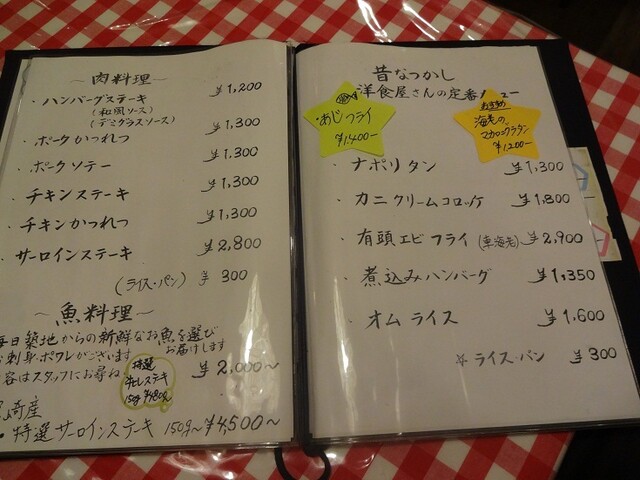 ~肉料理~
・ハンバーグステーキ ¥1,200
(和風ソース)
(デミグラスソース)
・ポークかつれつ ¥1,300
・ポークソテー ¥1,300
・チキンステーキ ¥1,300
・チキンかつれつ ¥1,300
・サーロインステーキ ¥2,800
(ライス・パン) ¥300
~魚料理~
毎日築地からの新鮮なお魚を選び
お届けします
お刺身、ポワレがございます
容はスタッフにお尋ね
¥2,000~
特選
150g
崎産
・特選サーロインステーキ 150g~¥4,500~
昔なつかし
洋食屋さんの定番メニュー
あじフライ
¥1,400-
おすすめ
海老の
マカロニグラタン
¥1,200-
・ナポリタン ¥1,300
・カニクリームコロッケ ¥1,800
・有頭エビフライ(車海老) ¥2,900
・煮込みハンバーグ ¥1,350
・オムライス ¥1,600
☆ライス・パン ¥300